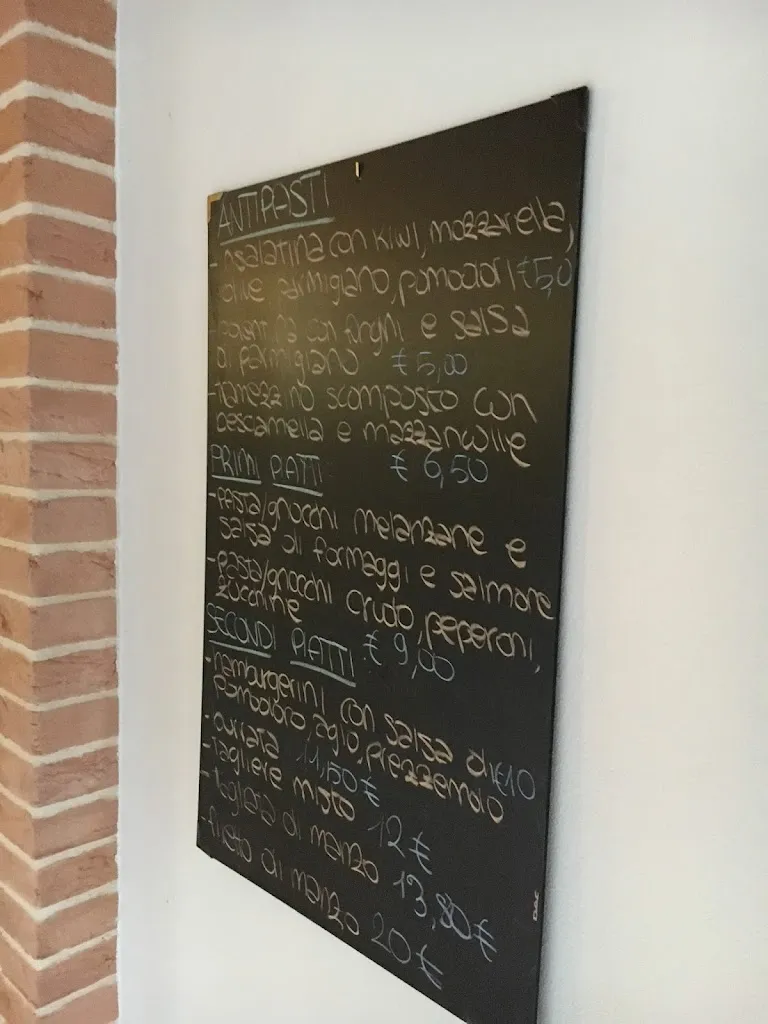 ANTIPASTI
- insalatina con kiwi, mozzarella,
olive parmigiano, pomodori €5,0
con funghi e salsa
di parmigiano € 5,00
- tramezzino scomposto con
besciamella e mazzancolle
€ 6,50
PRIMI PIATTI
- pasta/gnocchi melanzane e
salsa di formaggi e salmone
- pasta/gnocchi crudo, peperoni,
zucchine
€ 9,00
SECONDI PIATTI
- hamburgerini con salsa di €10
pomodoro, aglio, prezzemolo
- burrata 11,50 €
- tagliere misto 12 €
- tagliata di manzo 13,80 €
- filetto di manzo 20 €